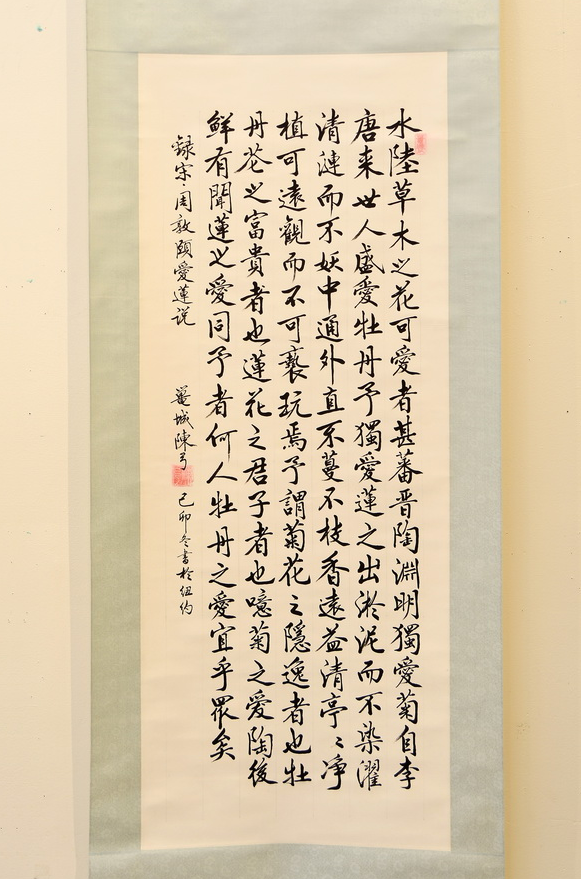 水陸草木之花可愛者甚蕃晋陶淵明獨愛菊自李
唐来世人盛愛牡丹予獨愛蓮之出淤泥而不染濯
清漣而不妖中通外直不蔓不枝香遠益清亭〻凈
植可遠觀而不可褻玩焉予謂菊花之隱逸者也牡
丹花之富貴者也蓮花之君子者也噫菊之愛陶後
鮮有聞蓮之愛同予者何人牡丹之愛宜乎眾矣
録宋·周敦頤愛蓮説
城陳弓
己卯冬書於紐約